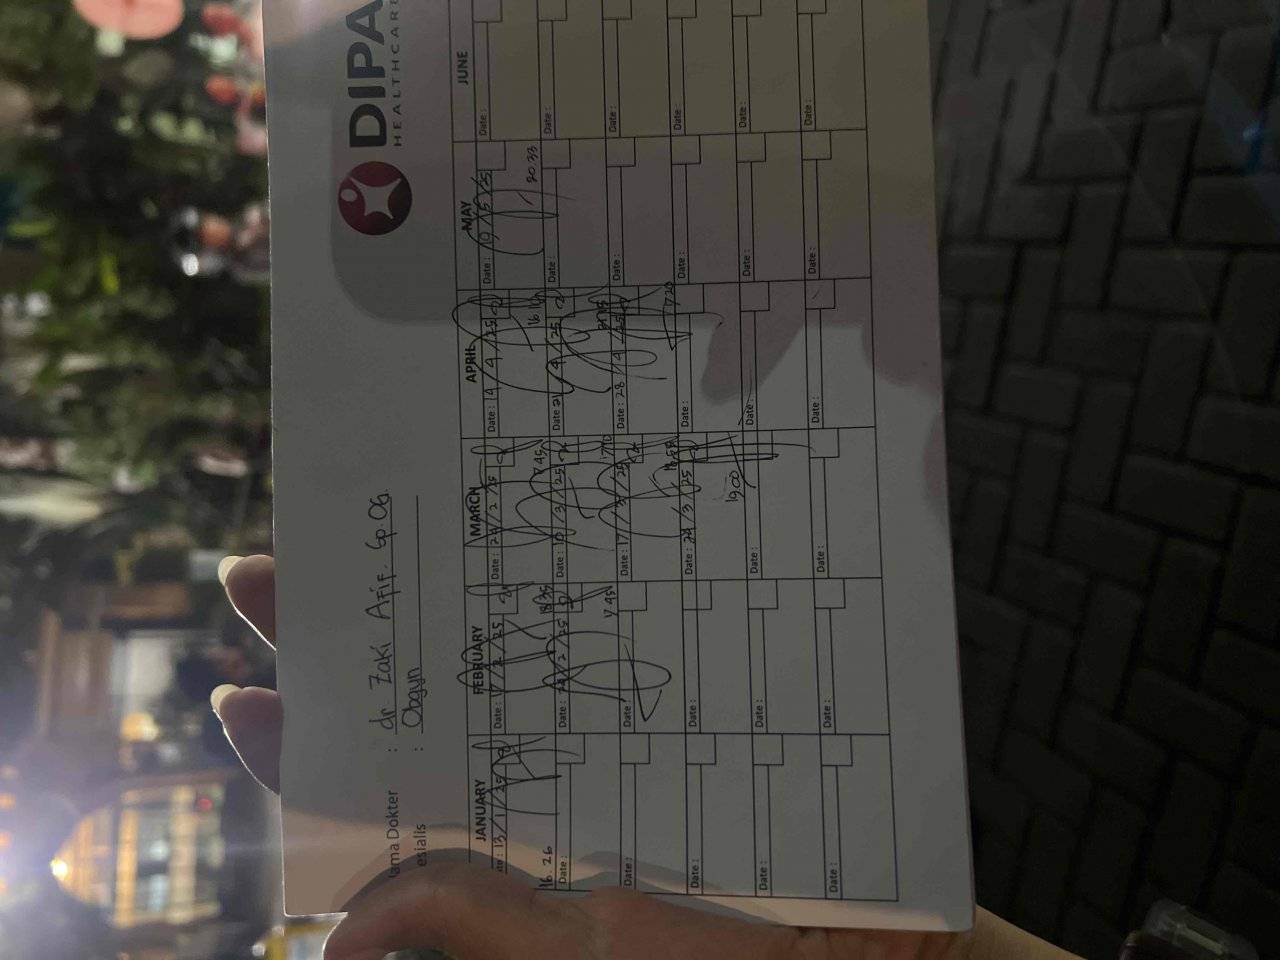 DIPA
HEALTHCARE
ama Dokter : dr Zaki Afif. Sp.OG
esialis : Obgyn
JANUARY FEBRUARY MARCH APRIL MAY JUNE
ate : 13/1/25 Date : 17/2/25 Date : 24/2/25 Date : 14/4/25 Date : 19/5/25 Date :
16.26 18.35 17.45 16.16 20.33
Date : Date : 24/2/25 Date : 10/3/25 Date : 21/4/25 Date : Date :
17.45
Date : Date : Date : 17/3/25 Date : 28/4/25 Date : Date :
17.20
Date : Date : Date : 24/3/25 Date : Date : Date :
19.00
Date : Date : Date : Date : Date : Date :
Date : Date : Date : Date : Date : Date :